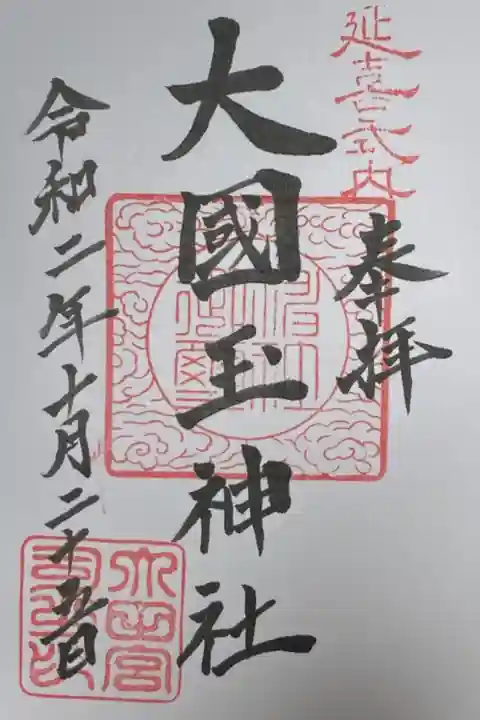 延喜式内
奉拝
大國玉神社
令和二年十月二十五日